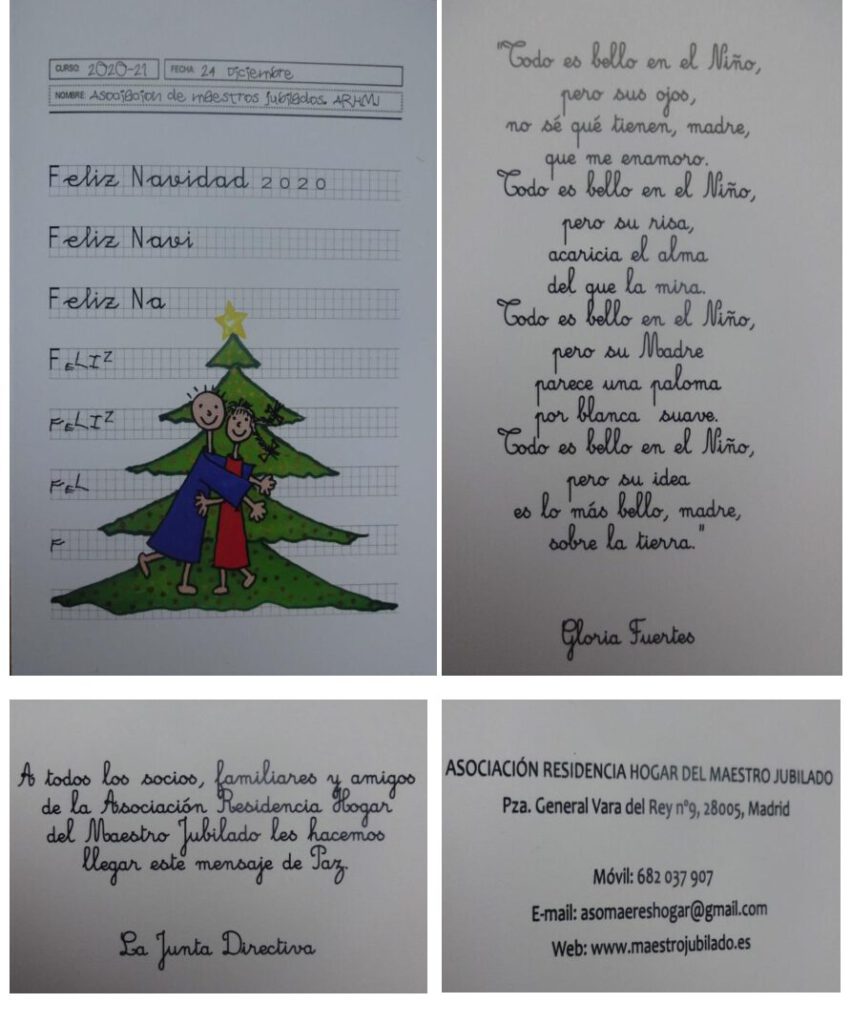 CURSO: 2020-21 FECHA: 24 Diciembre
NOMBRE: Asociacion de maestros jubilados. ARHMJ
Feliz Navidad 2020
Feliz Navi
Feliz Na
FELIZ
FELIZ
FEL
F
"Todo es bello en el Niño,
pero sus ojos,
no sé qué tienen, madre,
que me enamoro.
Todo es bello en el Niño,
pero su risa,
acaricia el alma
del que la mira.
Todo es bello en el Niño,
pero su Madre
parece una paloma
por blanca suave.
Todo es bello en el Niño,
pero su idea
es lo más bello, madre,
sobre la tierra."
Gloria Fuertes
A todos los socios, familiares y amigos
de la Asociación Residencia Hogar
del Maestro Jubilado les hacemos
llegar este mensaje de Paz.
La Junta Directiva
ASOCIACIÓN RESIDENCIA HOGAR DEL MAESTRO JUBILADO
Pza. General Vara del Rey nº9, 28005, Madrid
Móvil: 682 037 907
E-mail: asomaereshogar@gmail.com
Web: www.maestrojubilado.es